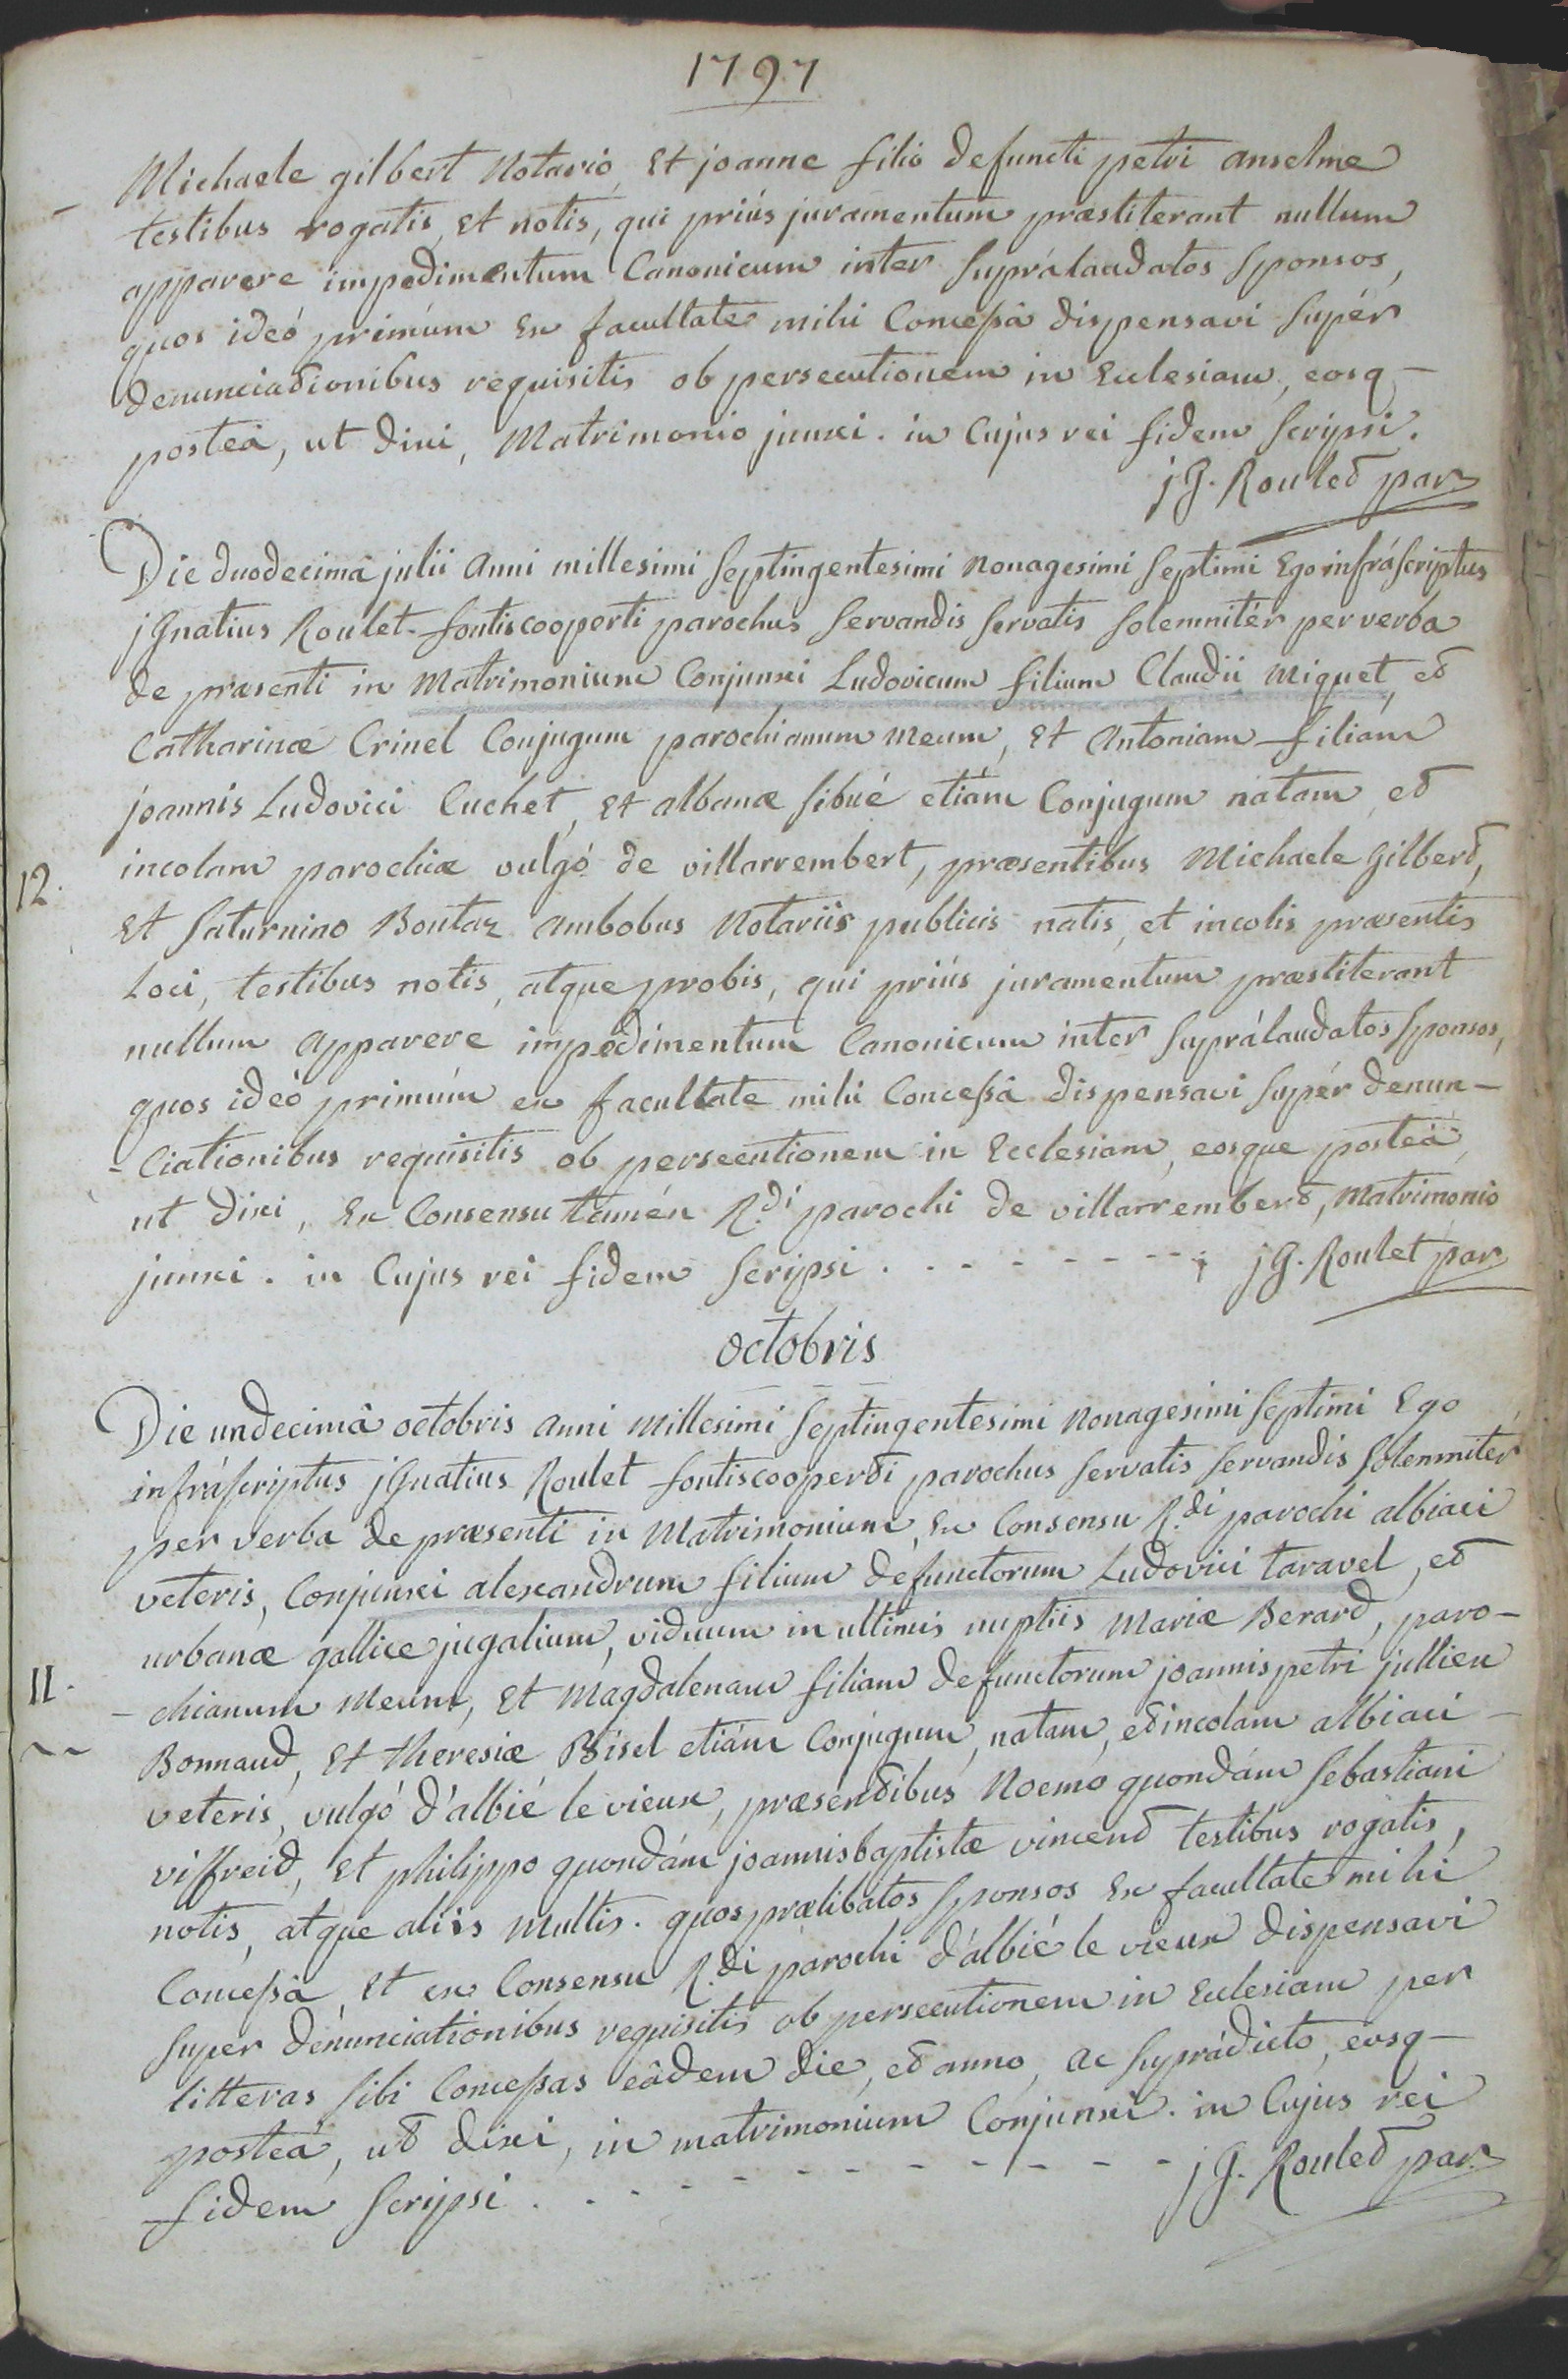 1797
Michaele gilbert Notario, Et joanne filio defuncti petri anselme
testibus rogatis, Et notis, qui priús juramentum præstiterant nullum
apparere impedimentum Canonicum inter suprálaudatos sponsos,
quos ideó primúm Ex facultate mihi Concessâ dispensavi supér
denunciationibus requisitis ob persecutionem in Ecclesiam, eosq-
posteà, ut dixi, Matrimonio junxi. in Cujus rei fidem scripsi.
jG. Roulet par
Die duodecimâ julii anni millesimi septingentesimi nonagesimi septimi Ego infráscriptus
jGnatius Roulet fontiscooperti parochus servandis servatis solemnitér per verba
de præsenti in Matrimonium Conjunxi Ludovicum filium Claudii Miquet, et
Catharinæ Crinel Conjugum parochianum meum, Et Antoniam filiam
joannis Ludovici Cuchet, Et albanæ sibué etiám Conjugum natam et
12. incolam parochiæ vulgó de villarrembert, præsentibus Michaele gilbert,
Et Saturnino Boutaz ambobus Notariis publicis natis, et incolis præsentis
Loci, testibus notis, atque probis, qui priús juramentum præstiterant
nullum apparere impedimentum Canonicum inter suprálaudatos sponsos,
quos ideó primúm ex facultate mihi Concessâ dispensavi supér denun-
-ciationibus requisitis ob persecutionem in Ecclesiam, eosque posteà,
ut dixi, Ex Consensu támén R.di parochi de villarrembert, Matrimonio
junxi. in Cujus rei fidem scripsi . - - - - - - - ; jG. Roulet par
octobris
Die undecimâ octobris anni Millesimi septingentesimi nonagesimi septimi Ego
infráscriptus jGnatius Roulet fontiscooperti parochus servatis servandis solemnitér
per verba de præsenti in Matrimonium, Ex Consensu R.di parochi albiaci
veteris, Conjunxi alexandrum filium defunctorum Ludovici taravel, et
urbanæ gallice jugalium, viduum in ultimis nuptiis Mariæ Berard, paro-
11. -chianum meum, Et Magdalenam filiam defunctorum joannispetri jullien
Bonnaud, Et theresiæ Bisel etiám Conjugum, natam, et incolam albiaci -
veteris, vulgó d'albié le vieux, præsentibus Noemo quondám sebastiani
viffreid, Et philippo quondám joannisbaptistæ vincend testibus rogatis,
notis, atque aliis multis. quos prælibatos sponsos Ex facultate mihi
Concessâ, Et ex Consensu R.di parochi d'albié le vieux dispensavi
super denunciationibus requisitis ob persecutionem in Ecclesiam per
litteras sibi Concessas eâdem die, et anno, ac suprádicto, eosq-
posteà, ut dixi, in matrimonium Conjunxi. in Cujus rei
fidem scripsi . - - - - - - - - - - jG. Roulet par